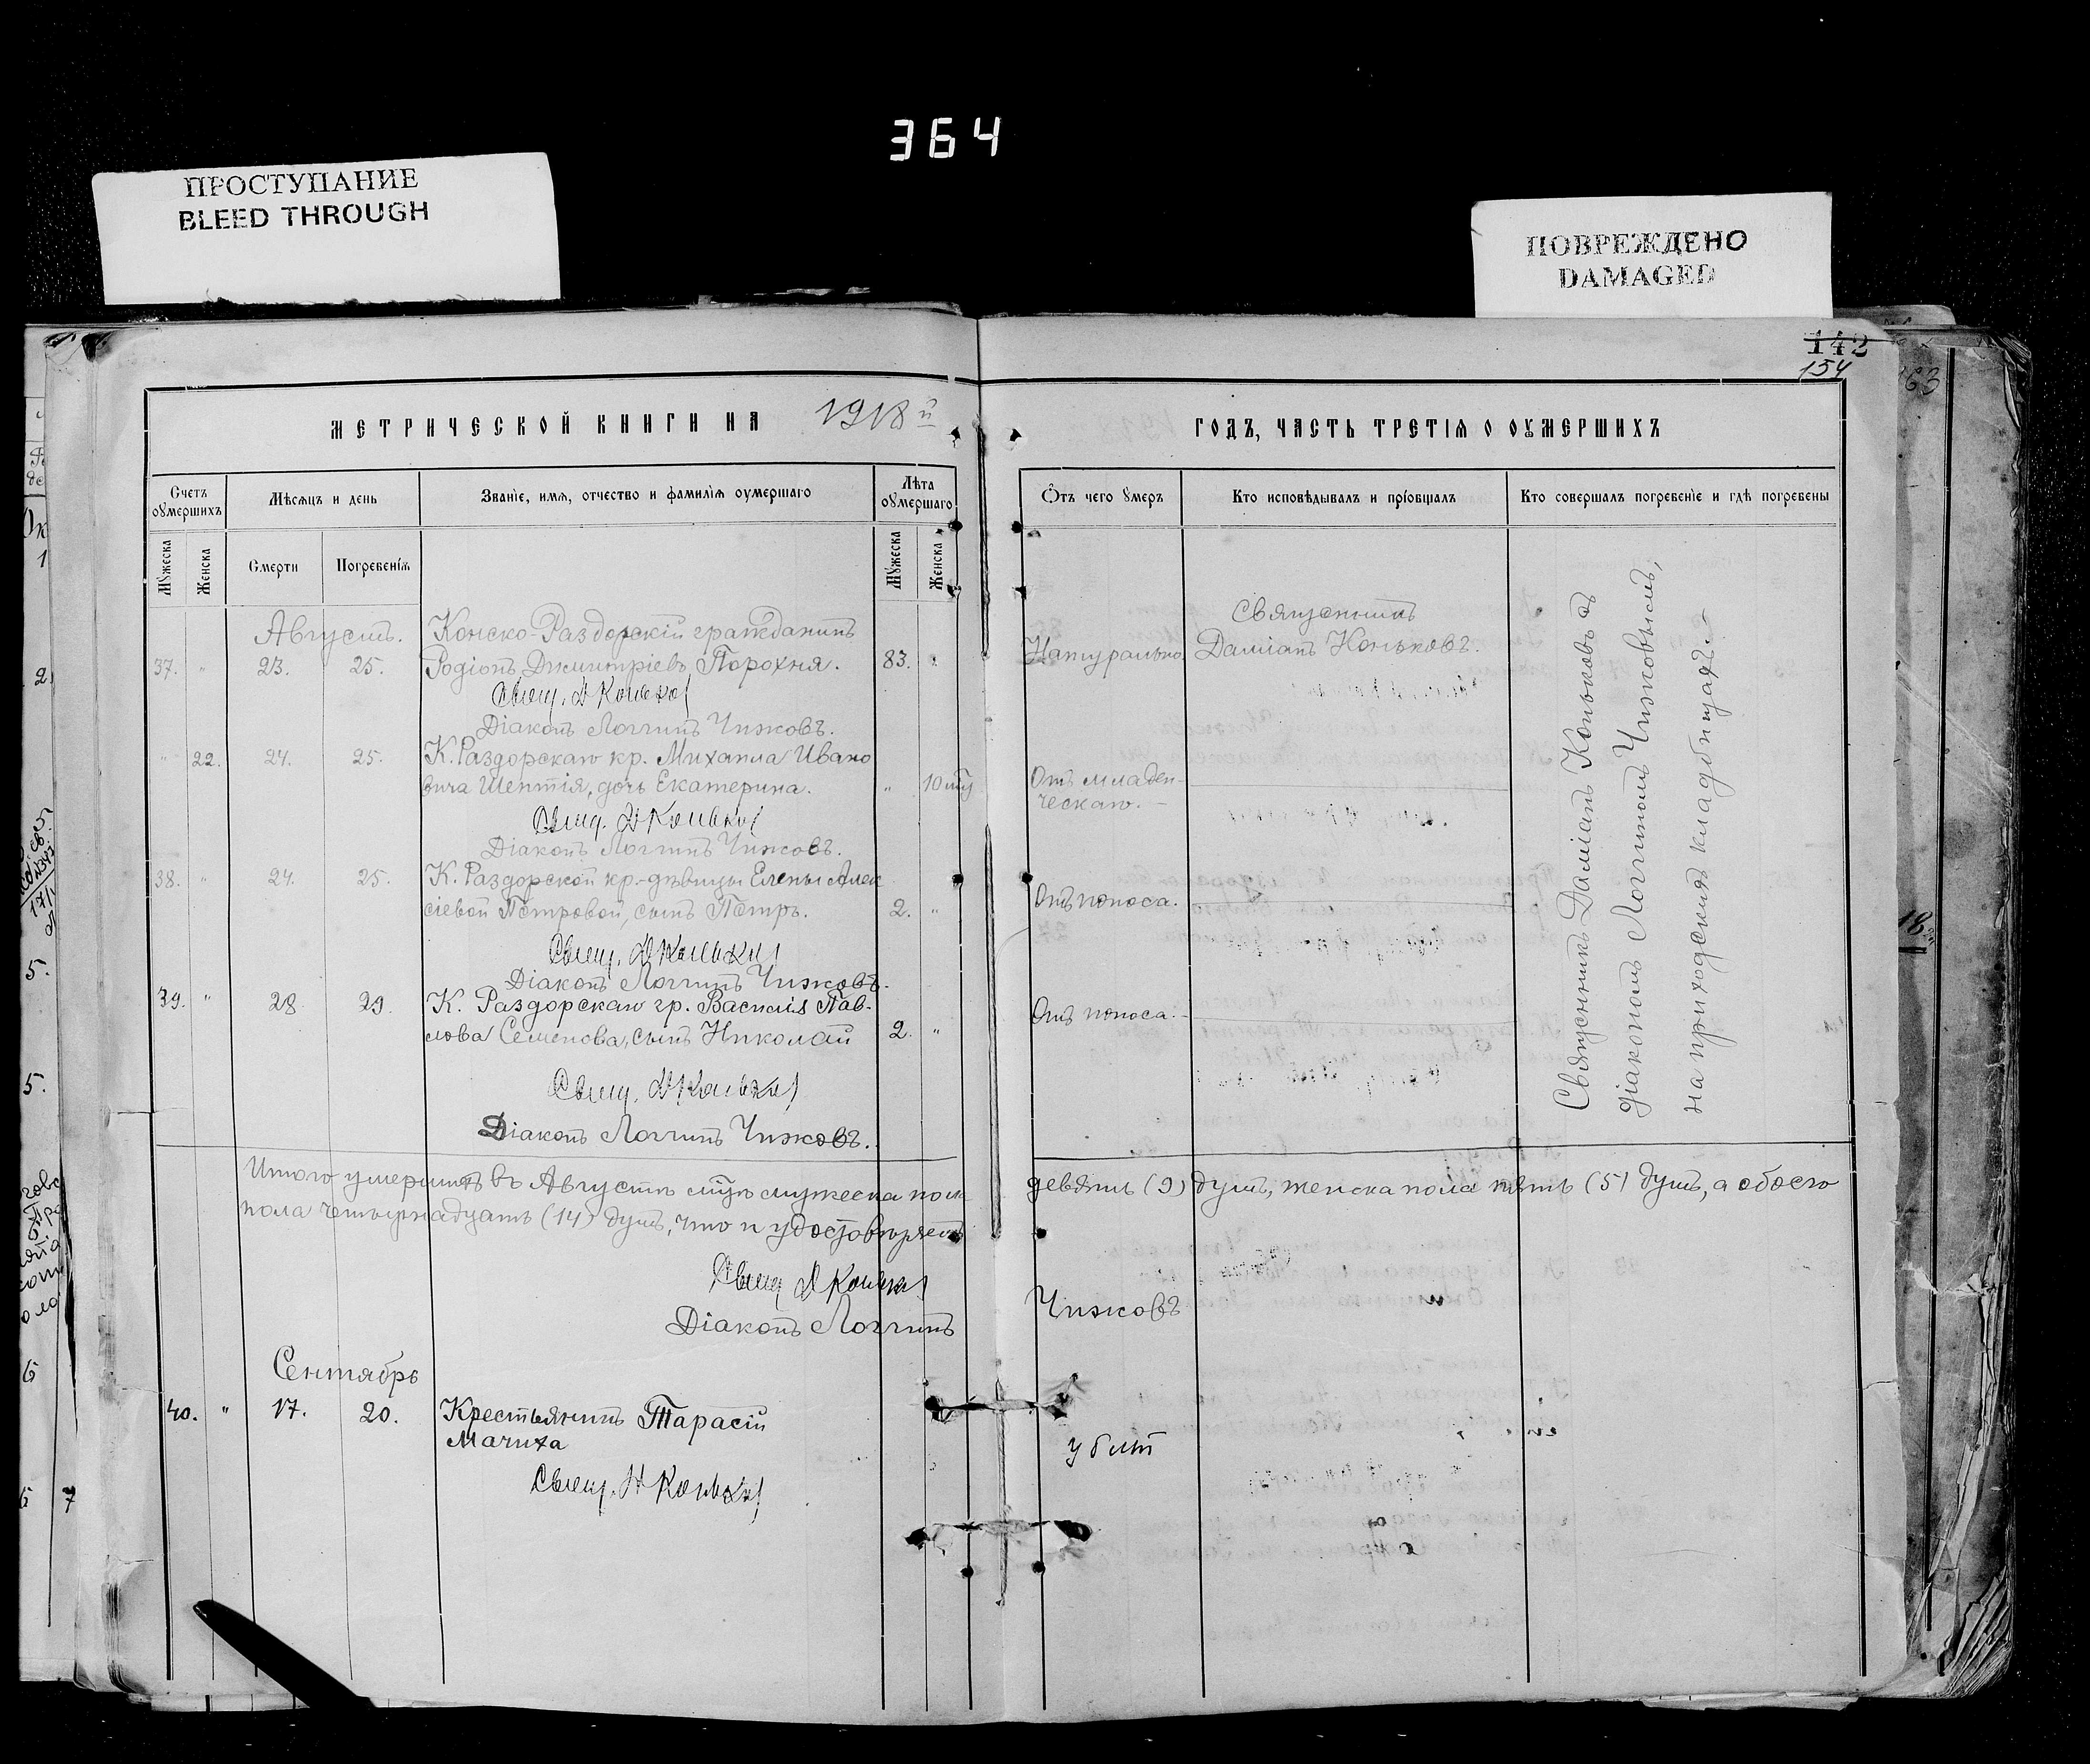 364
ПРОСТУПАНИЕ
BLEED THROUGH
ПОВРЕЖДЕНО
DAMAGED
142
154
МЕТРИЧЕСКОЙ КНИГИ НА 1918й
ГОДЪ, ЧАСТЬ ТРЕТІЯ О ОУМЕРШИХЪ
Счетъ оумершихъ
Мѣсяцъ и день
Званіе, имя, отчество и фамилія оумершаго
Лѣта оумершаго
Ѿтъ чего ѹмеръ
Кто исповѣдывалъ и пріобщалъ
Кто совершалъ погребеніе и гдѣ погребены
Мѹжеска
Женска
Смерти
Погребенія
Мѹжеска
Женска
Августъ. Конско-Раздорскій гражданинъ Священникъ
37. " 23. 25. Родіонъ Димитріевъ Порохня. 83. " Натурально Даміанъ Коньковъ.
Свящ. Д Коньков
Діаконъ Логгинъ Чижовъ.
" 22. 24. 25. К. Раздорскаго кр. Михаила Ивано
вича Шептія, дочь Екатерина. " 10 мц Отъ младен-
ческаго.
Свящ. Д Коньков
Діаконъ Логгинъ Чижовъ.
38. " 24. 25. К. Раздорской кр.-дѣвицы Елены Алек
сіевой Петровой, сынъ Петръ. 2. " Отъ поноса.
Свящ. Д Коньков
Діаконъ Логгинъ Чижовъ.
39. " 28 29. К. Раздорскаго гр. Василія Пав-
лова Семенова, сынъ Николай 2. " Отъ поноса.
Свящ. Д Коньков
Діаконъ Логгинъ Чижовъ.
Священникъ Даміанъ Коньковъ съ
діакономъ Логгиномъ Чижовымъ,
на приходскомъ кладбищѣ.
Итого умершихъ въ Августѣ мцѣ мужеска пола девять (9) душъ, женска пола пять (5) душъ, а обоего
пола четырнадцать (14) душъ, что и удостовѣряетъ
Свящ Д Коньков
Діаконъ Логгинъ Чижовъ
Сентябрь
40. " 17. 20. Крестьянинъ Тарасій
Мачиха убит
Свящ. Д Коньков